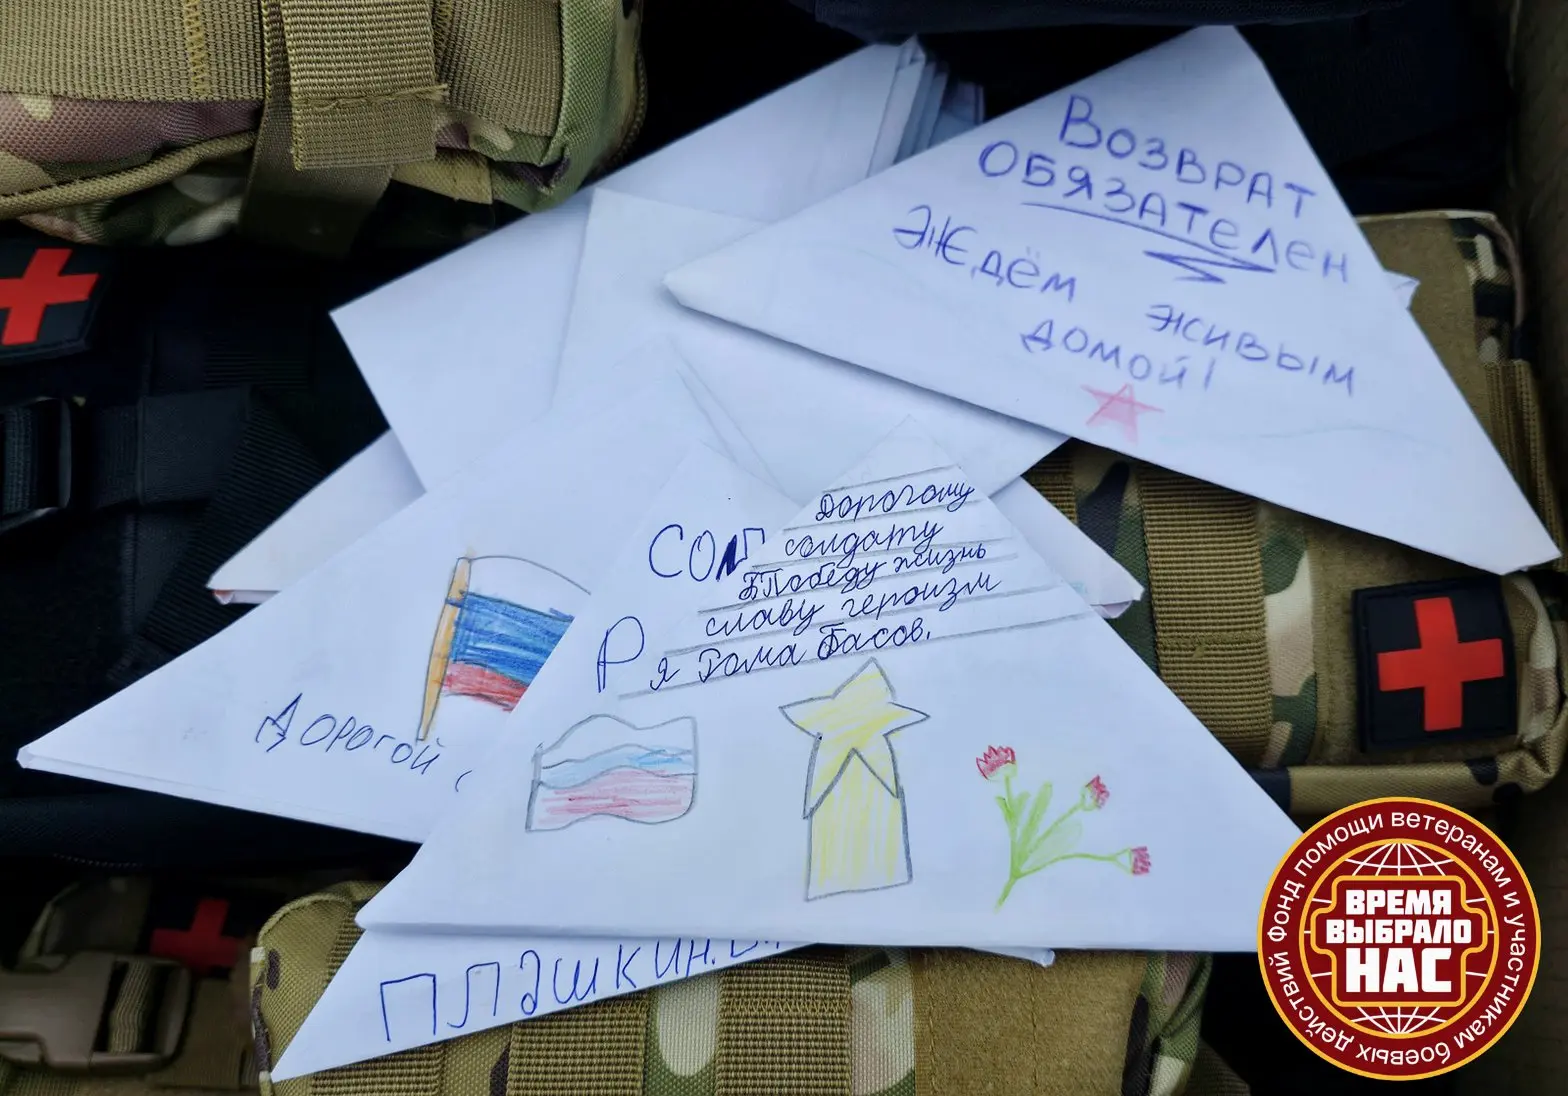 Возврат
ОБЯЗАТЕЛЕН
Ждём живым
домой!
Дорогому
солдату
Победу жизнь
славу героизм
я Рома Басов.
СОЛ
Р
Дорогой
ПЛЭШКИН.
Фонд помощи ветеранам и участникам боевых действий
ВРЕМЯ
ВЫБРАЛО
НАС